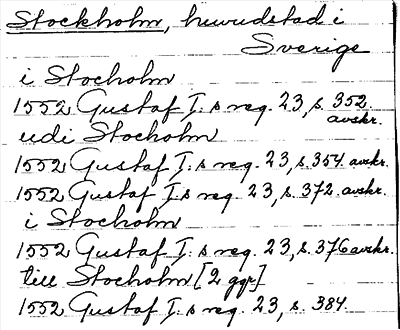 Stockholm, huvudstad i
Sverige
i Stocholm
1552 Gustaf I:s reg. 23, s. 352
avskr.
udi Stocholm
1552 Gustaf I:s reg. 23, s. 354 avskr.
1552 Gustaf I:s reg. 23, s. 372 avskr.
i Stocholm
1552 Gustaf I:s reg. 23, s. 376 avskr.
till Stocholm [2 ggr]
1552 Gustaf I:s reg. 23, s. 384.